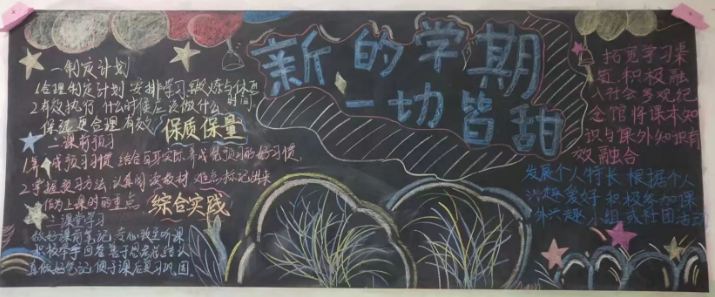 新的学期
一切皆甜
一制定计划
1合理制定计划 安排学习 锻炼与休息时间.
2有效执行 什么时候应该做什么
保证更合理有效
保质保量
二课前预习
1养成预习习惯 结合自身实际 养成
预习的好习惯.
2掌握预习方法 认真阅读教材 难点标记出来
作为上课时的重点.
综合实践
三课堂学习
做好课前笔记 专心致至听课
真做好笔记 便于课后复习巩固
拓宽学习渠
道 积极融
入社会 参观纪
念馆 将课本知
识与课外知识有
效融合
发展个人特长 根据个人
兴趣爱好 积极参加课
外兴趣小组或社团活动